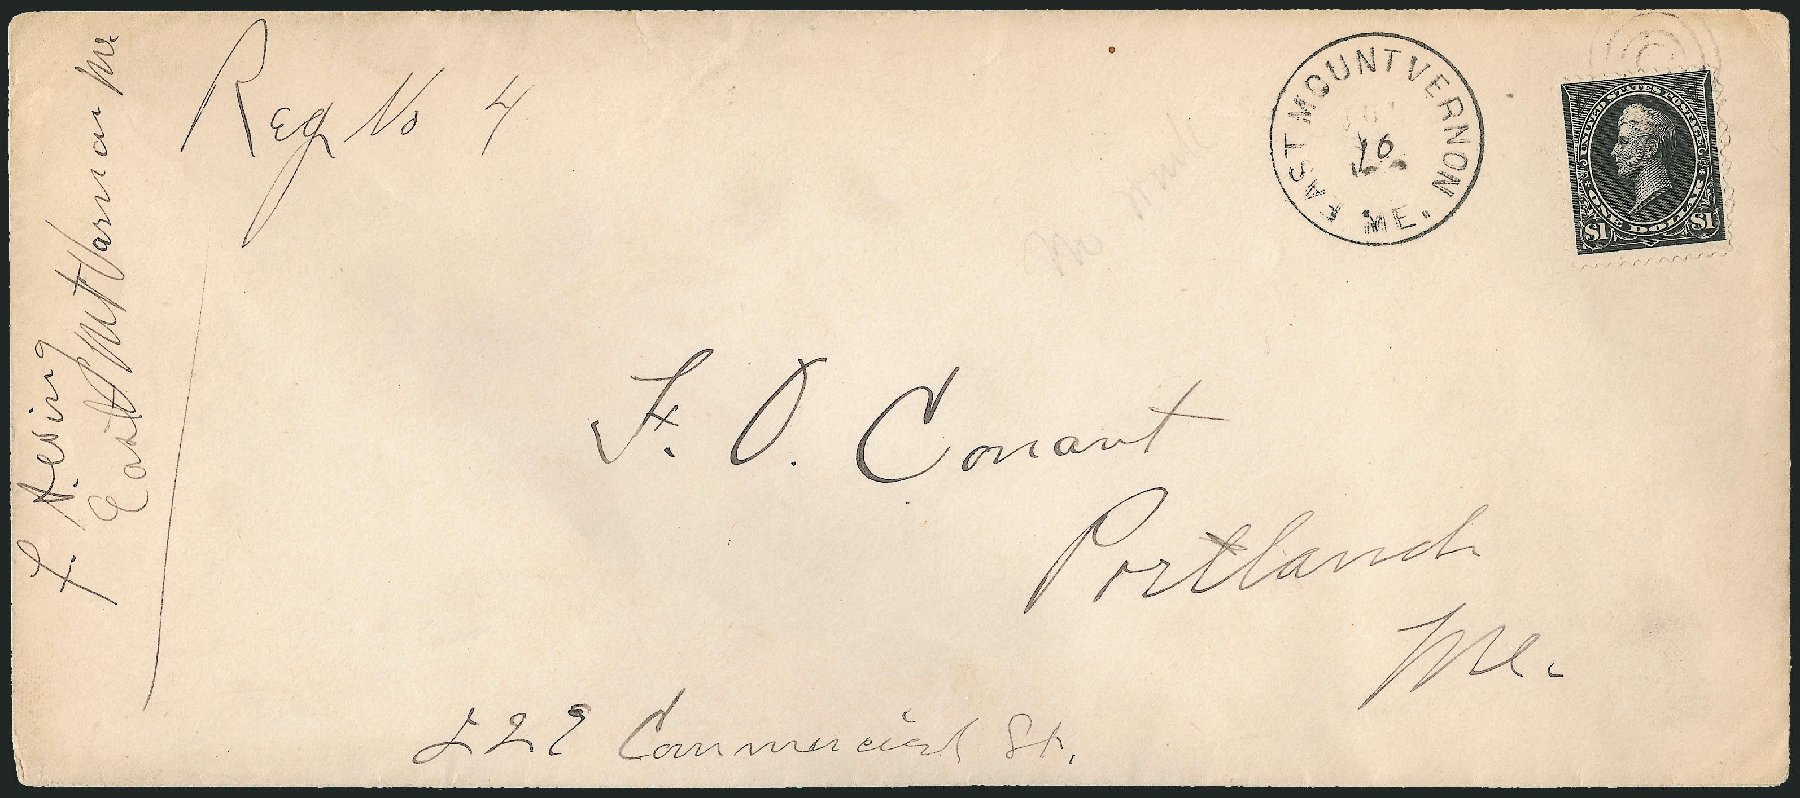 F. A. Ewing
East Mt Vernon Me
Reg No 4
EAST MOUNT VERNON
ME.
UNITED STATES POSTAGE
ONE DOLLAR
$1 $1
F. O. Conant
Portland
Me.
222 Commercial St.